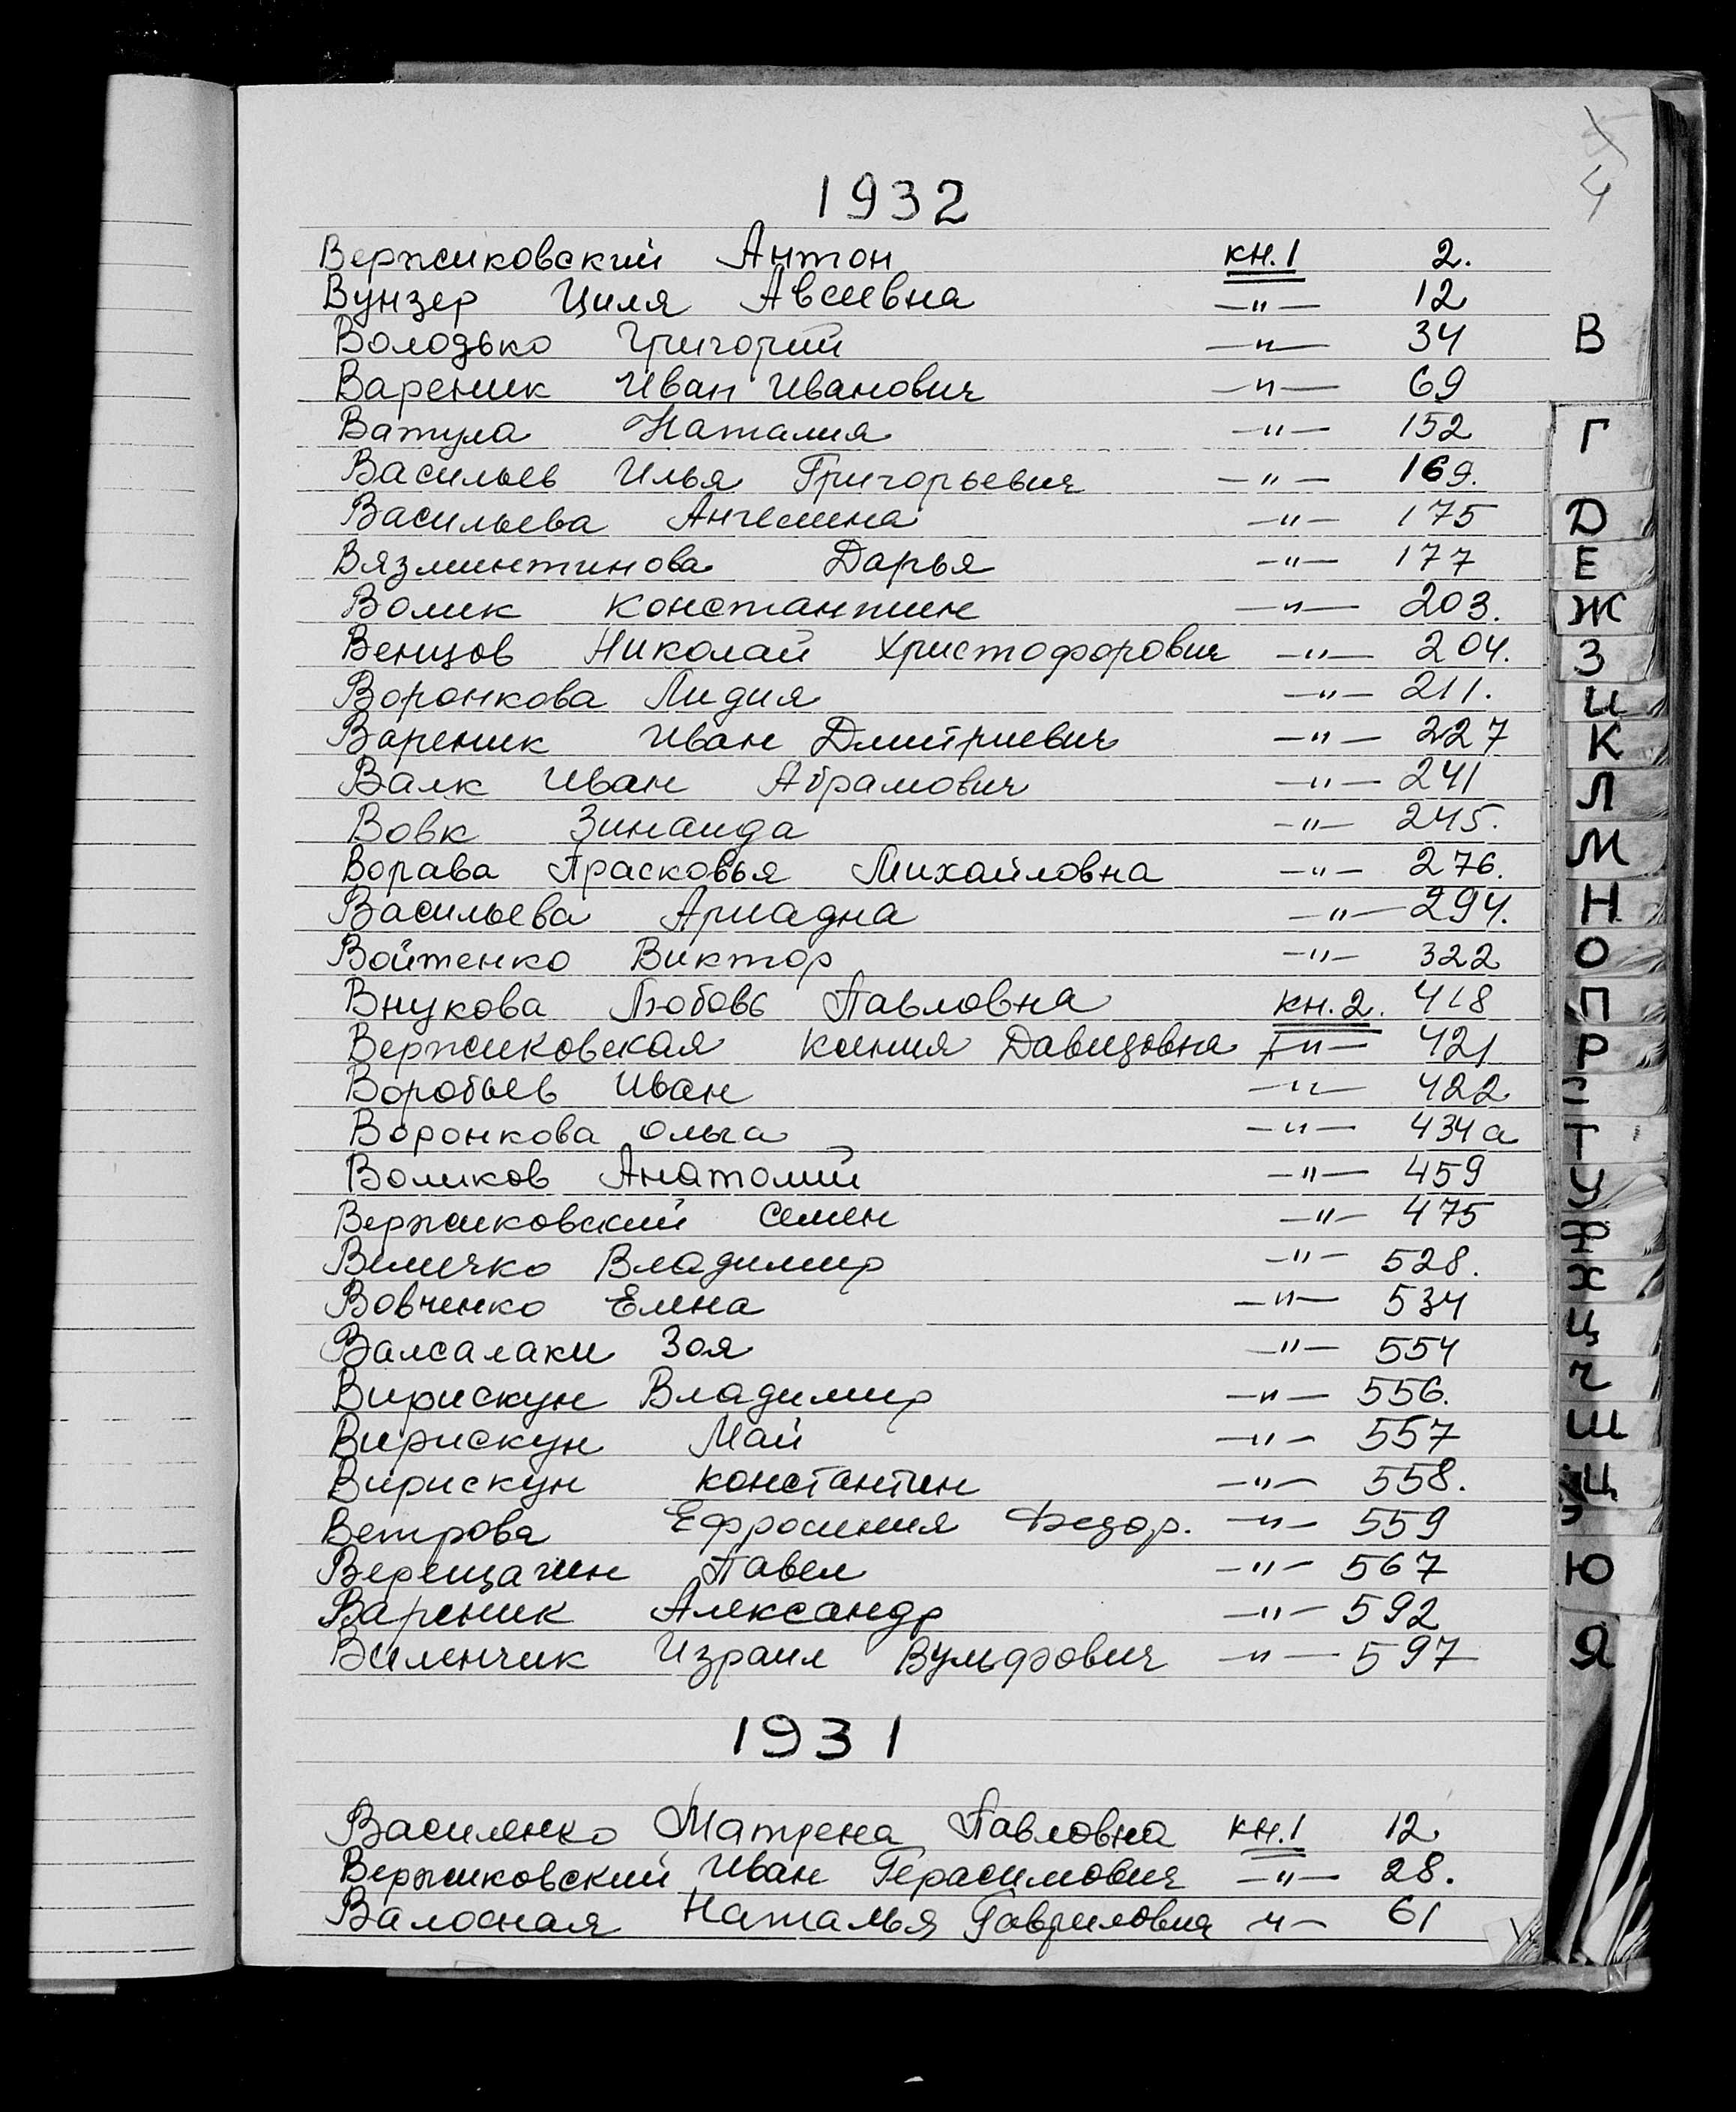 4
1932
Вержиковский Антон кн.1 2.
Вунзер Циля Авсеевна —"— 12
Володько Григорий —"— 34
Вареник Иван Иванович —"— 69
Ватула Наталия —"— 152
Васильев Илья Григорьевич —"— 169.
Васильева Ангелина —"— 175
Вязминтинова Дарья —"— 177
Волик Константин —"— 203.
Венцов Николай Христофорович —"— 204.
Воронкова Лидия —"— 211.
Вареник Иван Дмитриевич —"— 227
Валк Иван Абрамович —"— 241
Вовк Зинаида —"— 245.
Ворава Прасковья Михайловна —"— 276.
Васильева Ариадна —"— 294.
Войтенко Виктор —"— 322
Внукова Любовь Павловна кн.2. 418
Вержиковская Ксения Давидовна —"— 421
Воробьев Иван —"— 422
Воронкова Ольга —"— 434а
Воликов Анатолий —"— 459
Вержиковский Семен —"— 475
Величко Владимир —"— 528.
Вовченко Елена —"— 534
Валсалаки Зоя —"— 554
Вирискун Владимир —"— 556.
Вирискун Май —"— 557
Вирискун Константин —"— 558.
Ветрова Ефросиния Федор. —"— 559
Верещагин Павел —"— 567
Вареник Александр —"— 592
Виленчик Израил Вульфович —"— 597
1931
Василенко Матрена Павловна кн.1 12
Вержиковский Иван Герасимович —"— 28.
Валосная Наталья Гавриловна —"— 61
В
Г
Д
Е
Ж
З
И
К
Л
М
Н
О
П
Р
Т
У
Ф
Х
Ц
Ч
Ш
Щ
Ю
Я